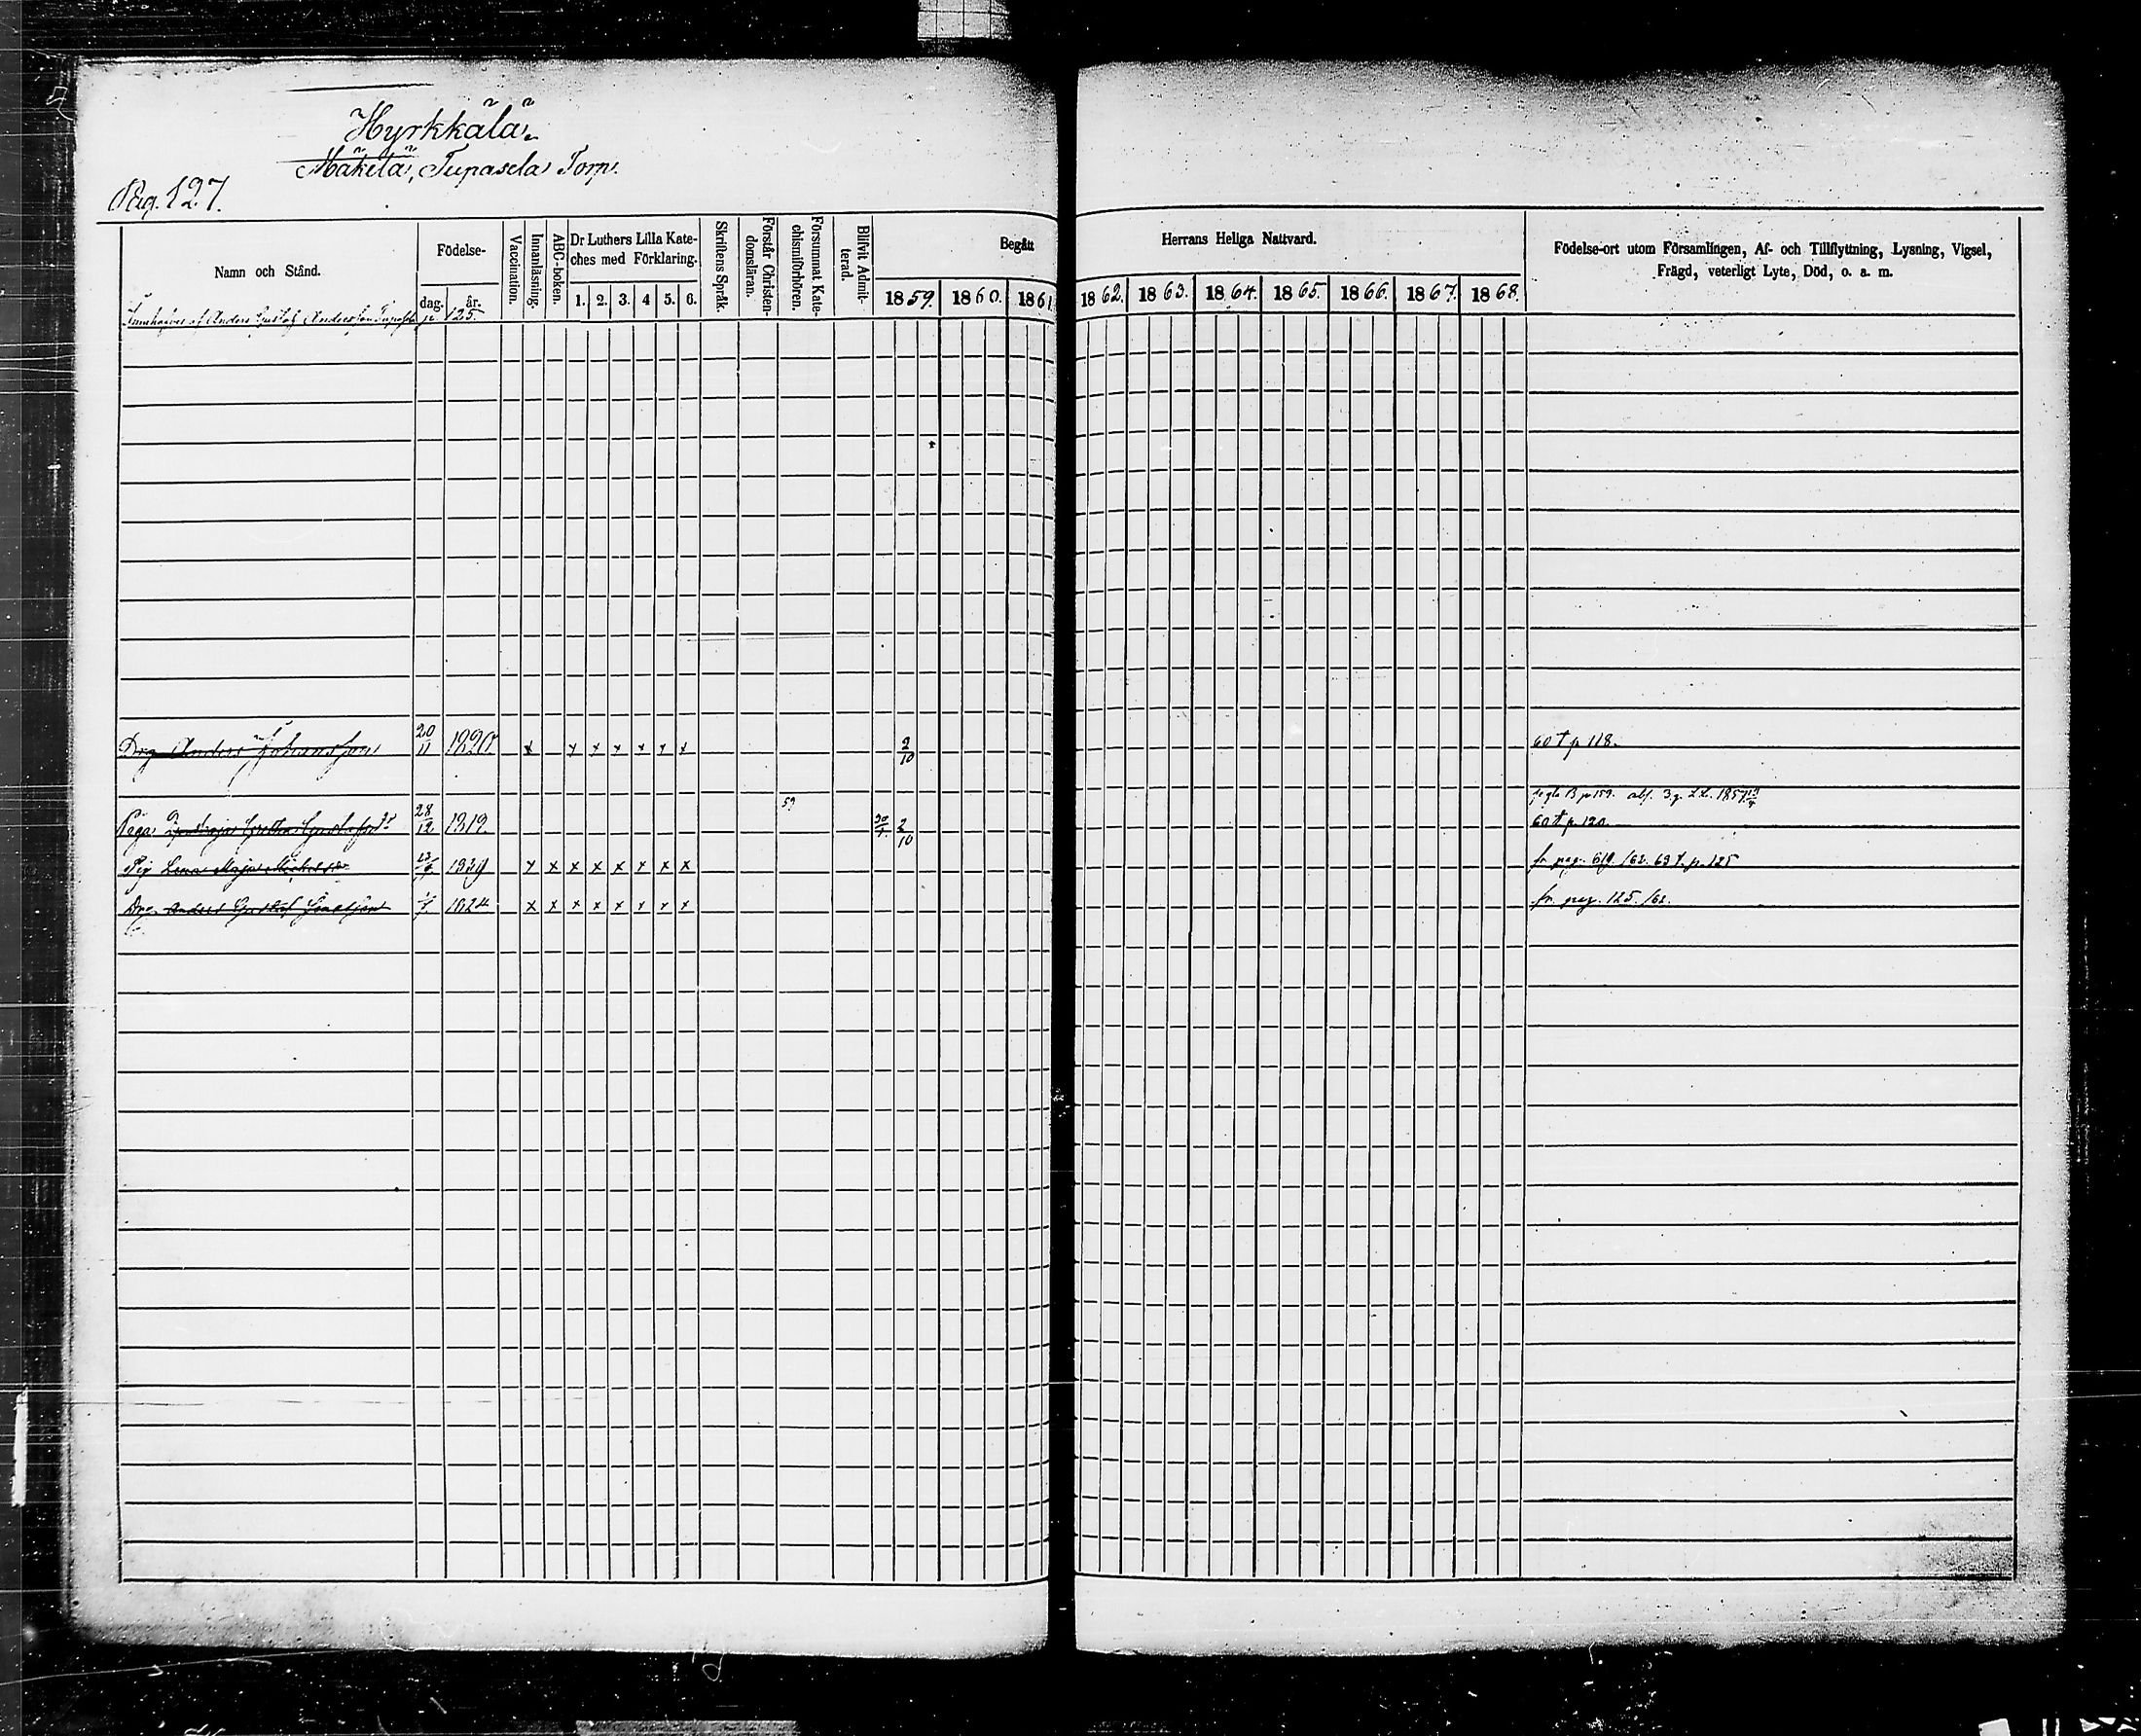 Hyrkkälä
Mäkilä, Tupasela Torp.
Pag. 127.
Namn och Stånd.
Födelse-
dag.
år.
Vaccination.
Innanläsning.
ABC-boken.
Dr Luthers Lilla Kate-
ches med Förklaring.
1. 2. 3. 4 5. 6.
Skriftens Språk.
Förstår Christen-
domsläran.
Försummat Kate-
chismiförhören.
Blifvit Admit-
terad.
Begått
Herrans Heliga Nattvard.
1859. 1860. 1861. 1862. 1863. 1864. 1865. 1866. 1867. 1868.
Födelse-ort utom Församlingen, Af- och Tillflyttning, Lysning, Vigsel,
Frägd, veterligt Lyte, Död, o. a. m.
Innehafves af Anders Gustaf Andersson p. 125.
Drg Anders Johansson 20/11 1820 x x x x x x x 2/10 60 t p 118.
59 p 159. 3 g. 1857
Piga Gretha 28/12 1819. 2/10 60 t p. 120
Pig Lena Maja Michelsdr 1839 x x x x x x x x fr pag. 619. /62. 63 t. p. 125
Drg Anders Gustaf 1824 x x x x x x x x fr. pag. 125. /62.